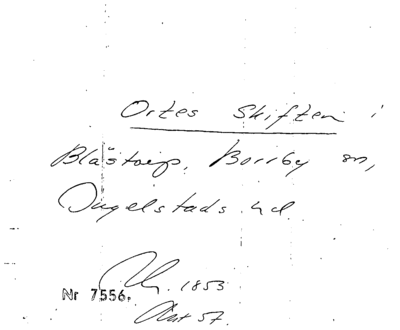 Ortes Skiften i
Blåstorp, Borrby sn,
Ingelstads hd.
1853
Nr 7556.
Akt 57.